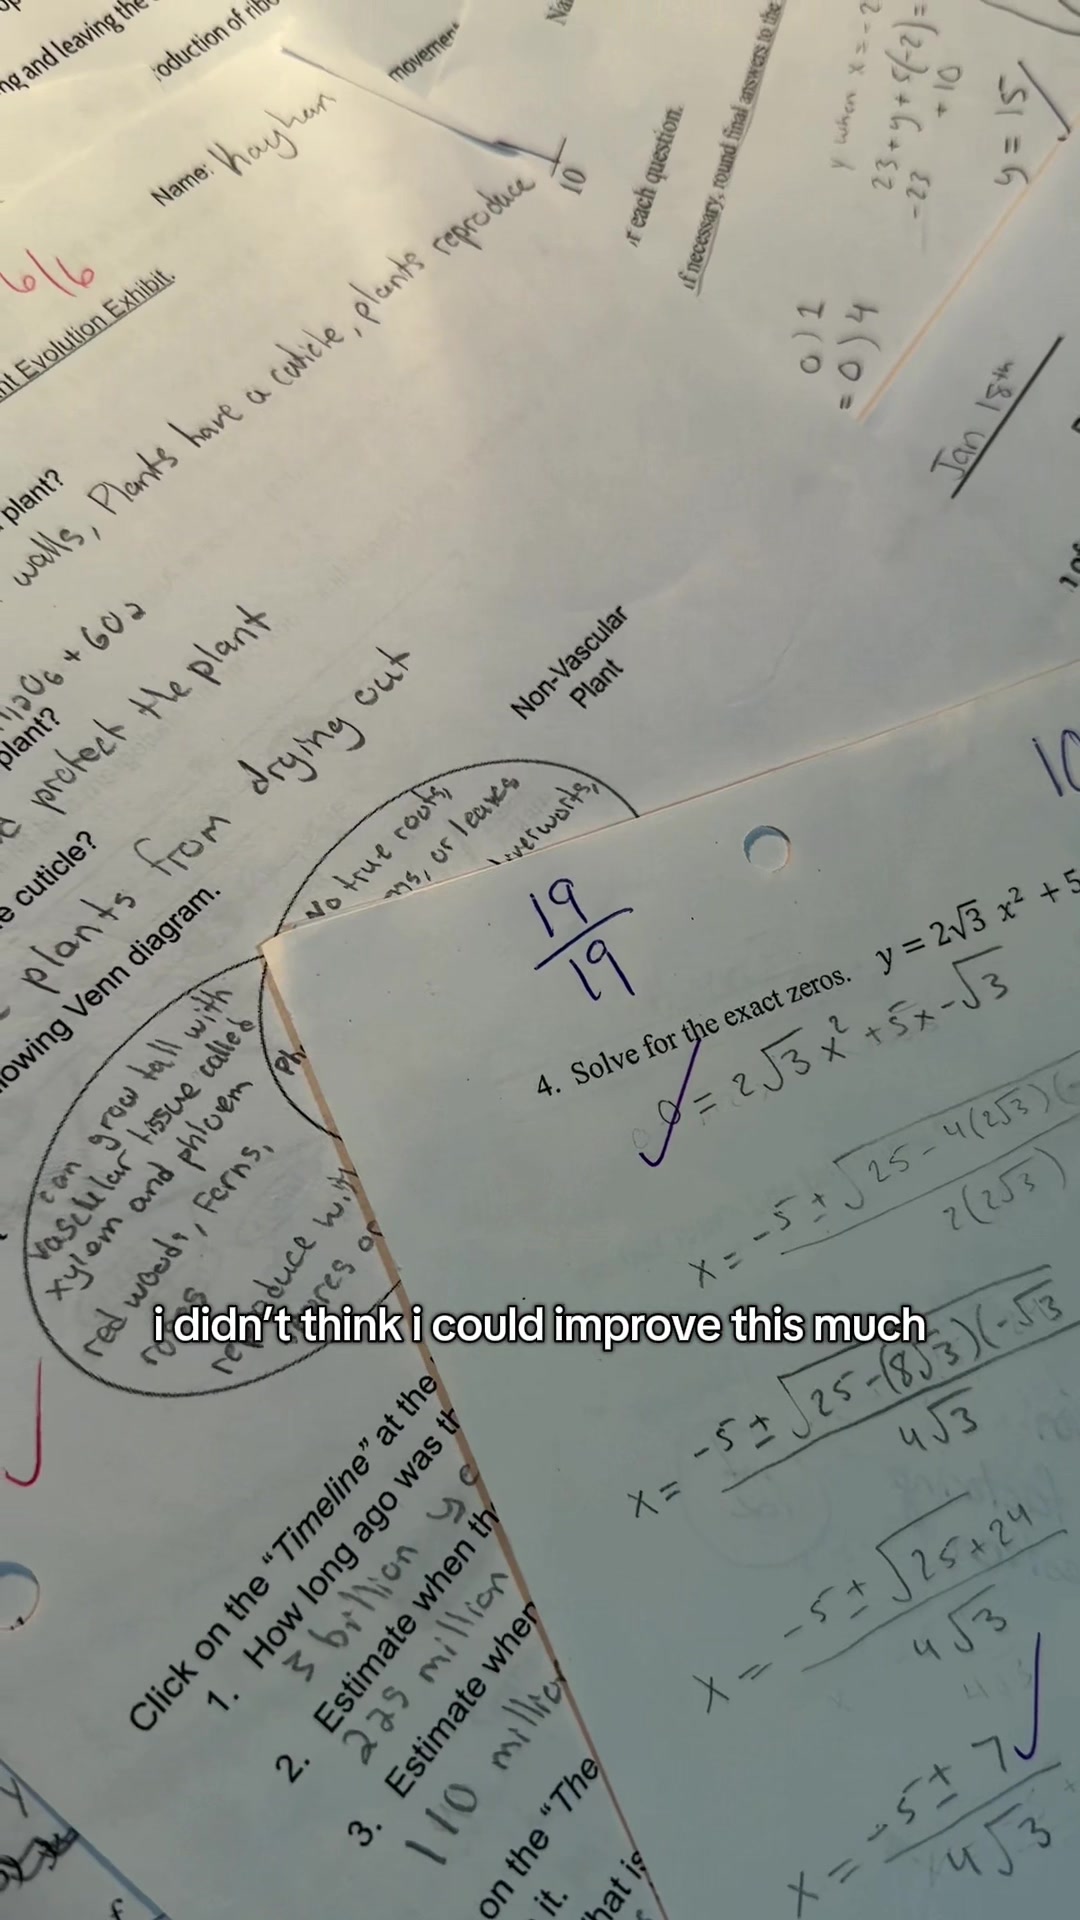 ng and leaving the
oduction of ribo
movement
Name: Kayhan
10
6/6
nt Evolution Exhibit.
plant?
walls, Plants have a cuticle, plants reproduce
6O2
plant?
protect the plant
e cuticle?
plants from drying out
lowing Venn diagram.
Non-Vascular
Plant
No true roots,
ms, or leaves
iverworts,
can grow tall with
vascular tissue called
xylem and phloem
red woods, Ferns,
roses
reproduce with
spores or
r each question.
if necessary, round final answers to the
y when x = -2
23 + y + 5(-2) =
-23 + 10
y = 15
0) 1
= 0) 4
Jan 18th
10
19
19
4. Solve for the exact zeros. y = 2√3 x² + 5
0 = 2√3 x² + 5x - √3
x = -5 ± √25 - 4(2√3)(-
2(2√3)
x = -5 ± √25 - (8√3)(-√3
4√3
x = -5 ± √25 + 24
4√3
x = -5 ± 7
4√3
i didn't think i could improve this much
Click on the "Timeline" at the
1. How long ago was th
3 billion ye
2. Estimate when th
225 million
3. Estimate when
110 million
on the "The
it.
hat is